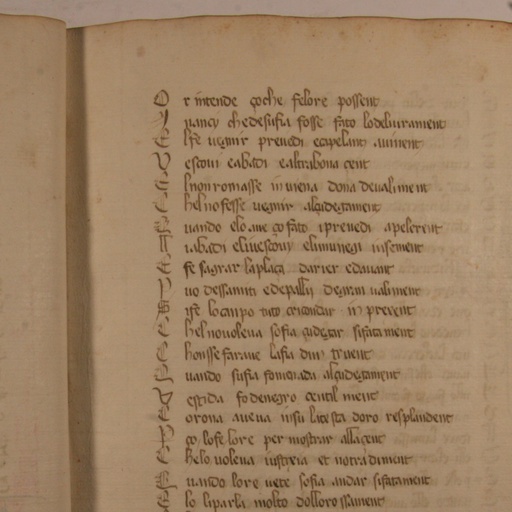 O r intende çoche felore possent
A nançi chedesufia fosse fato lodelivrament
E lfe vegnir prevedi ecapelani avinent
V escovi eabadi ealtrabona çent
E lnonromasse inviena dona devaliment
C helnofesse vegnir alçudegament
Q uando elo ave ço fato iprevedi apelerent
A iabadi elivescovy elimunegi insement
E fe sagrar laplaça darier edavant
D uo dessamiti edepallii degran valiment
R ise locanpo tuto in prevent
C helnovoleva sofia çudegar sifatament
E honssefarave lafia dun trient
Q uando sufia fomenada alçudegament
V estida fodenegro çentil ment
C orona aveva insu latesta doro resplandent
P ço lofe lore per mostrar allaçent
C helo voleva iustixia et notradiment
Q uando lore vete sofia andar sifatament
E lo liparla molto dollorossament